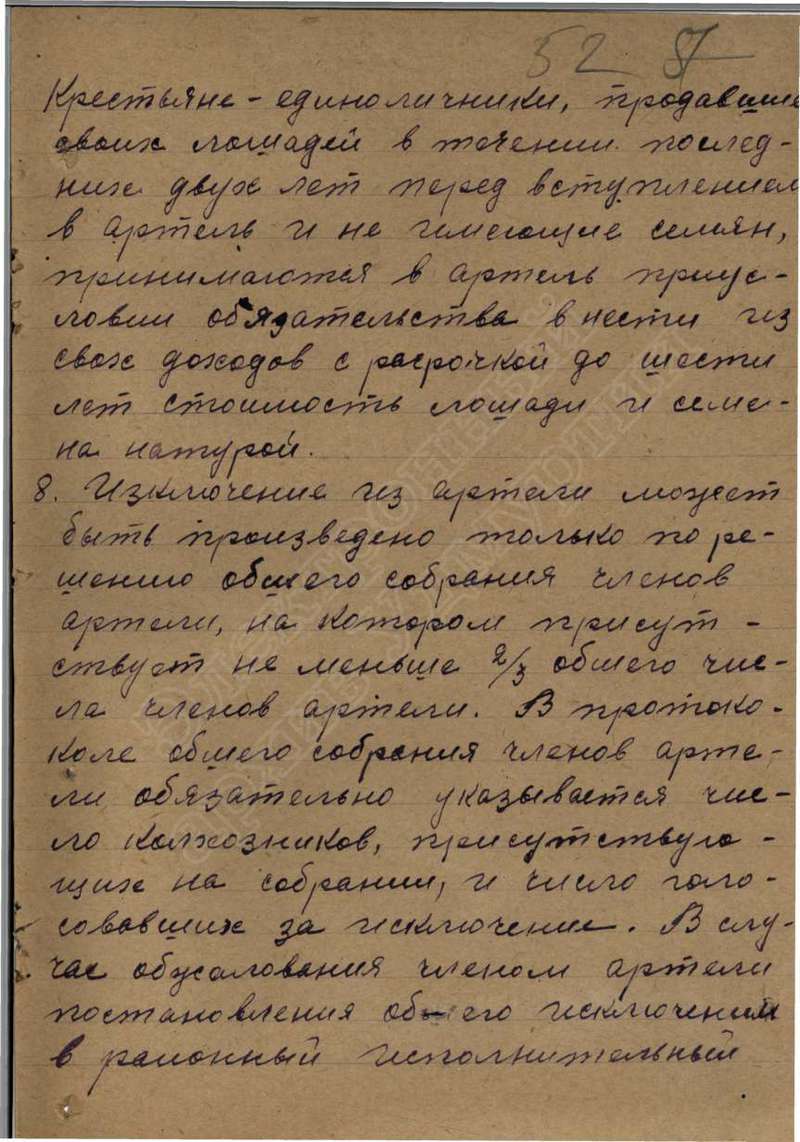 52 87
Крестьяне - единоличники, продавшие
своих лошадей в течении послед-
них двух лет перед вступлением
в артель и не имеющие семян,
принимаются в артель приус-
ловии обязательства внести из
своих доходов с расрочкой до шести
лет стоимость лошади и семе-
на натурой.
8. Изключение из артели может
быть произведено только по ре-
шению общего собрания членов
артели, на котором присут-
ствует не меньше 2/3 общего чис-
ла членов артели. В протоко-
коле общего собрания членов арте-
ли обязательно указывается чис-
ло колхозников, присутствую-
щих на собрании, и число голо-
совавших за исключение. В слу-
чае обжалования членом артели
постановления об его исключении
в районный исполнительный